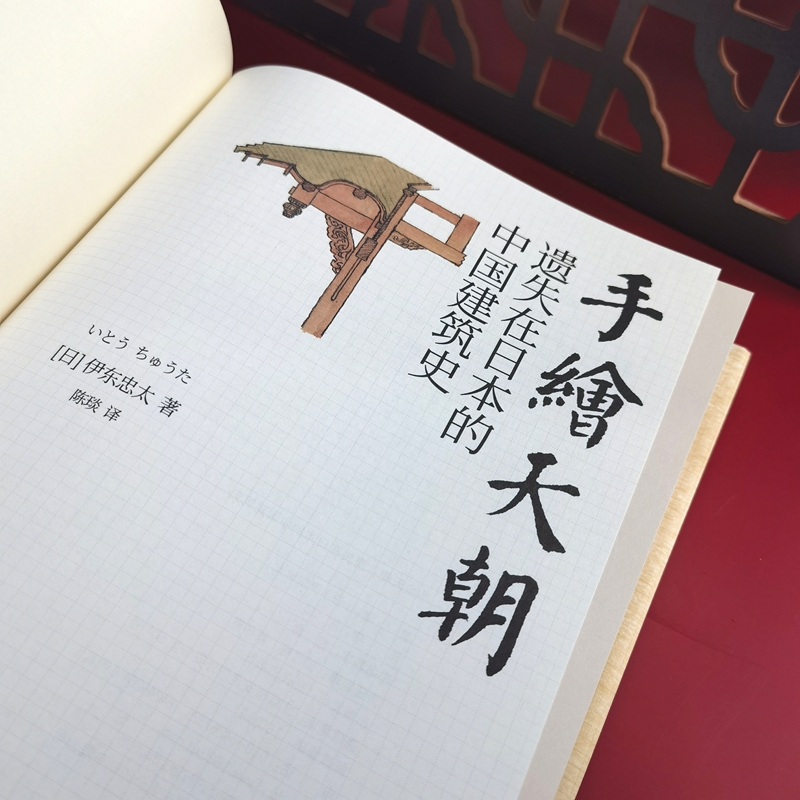 手繪天朝
遗失在日本的
中国建筑史
いとう ちゅうた
[日]伊东忠太 著
陈琰 译